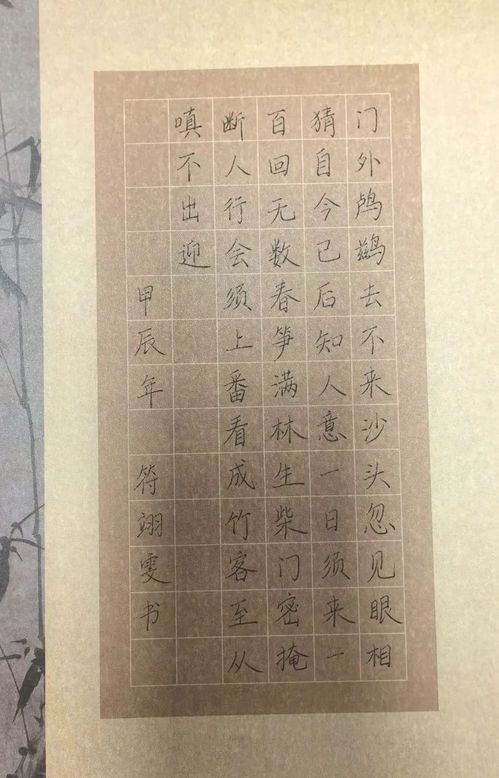 门外鸬鹚去不来沙头忽见眼相
猜自今已后知人意一日须来一
百回无数春笋满林生柴门密掩
断人行会须上番看成竹客至从
嗔不出迎
甲辰年 符翊雯书